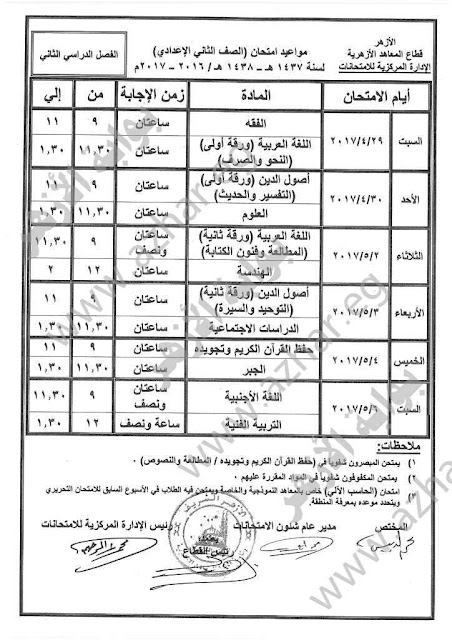 الأزهر
قطاع المعاهد الأزهرية
الإدارة المركزية للامتحانات
مواعيد امتحان (الصف الثاني الإعدادي)
لسنة ١٤٣٧ هـ - ١٤٣٨ هـ / ٢٠١٦ - ٢٠١٧م
الفصل الدراسي الثاني
أيام الامتحان المادة زمن الإجابة من إلي
السبت ٢٠١٧/٤/٢٩ الفقه ساعتان ٩ ١١
اللغة العربية (ورقة أولى) (النحو والصرف) ساعتان ١١,٣٠ ١,٣٠
الأحد ٢٠١٧/٤/٣٠ أصول الدين (ورقة أولى) (التفسير والحديث) ساعتان ٩ ١١
العلوم ساعتان ١١,٣٠ ١,٣٠
الثلاثاء ٢٠١٧/٥/٢ اللغة العربية (ورقة ثانية) (المطالعة وفنون الكتابة) ساعتان ونصف ٩ ١١,٣٠
الهندسة ساعتان ١٢ ٢
الأربعاء ٢٠١٧/٥/٣ أصول الدين (ورقة ثانية) (التوحيد والسيرة) ساعتان ٩ ١١
الدراسات الاجتماعية ساعتان ١١,٣٠ ١,٣٠
الخميس ٢٠١٧/٥/٤ حفظ القرآن الكريم وتجويده ساعتان ٩ ١١
الجبر ساعتان ١١,٣٠ ١,٣٠
السبت ٢٠١٧/٥/٦ اللغة الأجنبية ساعتان ونصف ٩ ١١,٣٠
التربية الفنية ساعة ونصف ١٢ ١,٣٠
ملاحظات:
١) يمتحن المبصرون شفوياً في (حفظ القرآن الكريم وتجويده / المطالعة والنصوص).
٢) يمتحن المكفوفون شفوياً في المواد المقررة عليهم.
٣) امتحان (الحاسب الآلي) خاص بالمعاهد النموذجية والخاصة ويمتحن فيه الطلاب في الأسبوع السابق للامتحان التحريري
ويتحدد موعده بمعرفة المنطقة.
المختص
مدير عام شئون الامتحانات
رئيس الإدارة المركزية للامتحانات
يعتمد
رئيس القطاع
بوابة الأزهر
www.azhar.eg